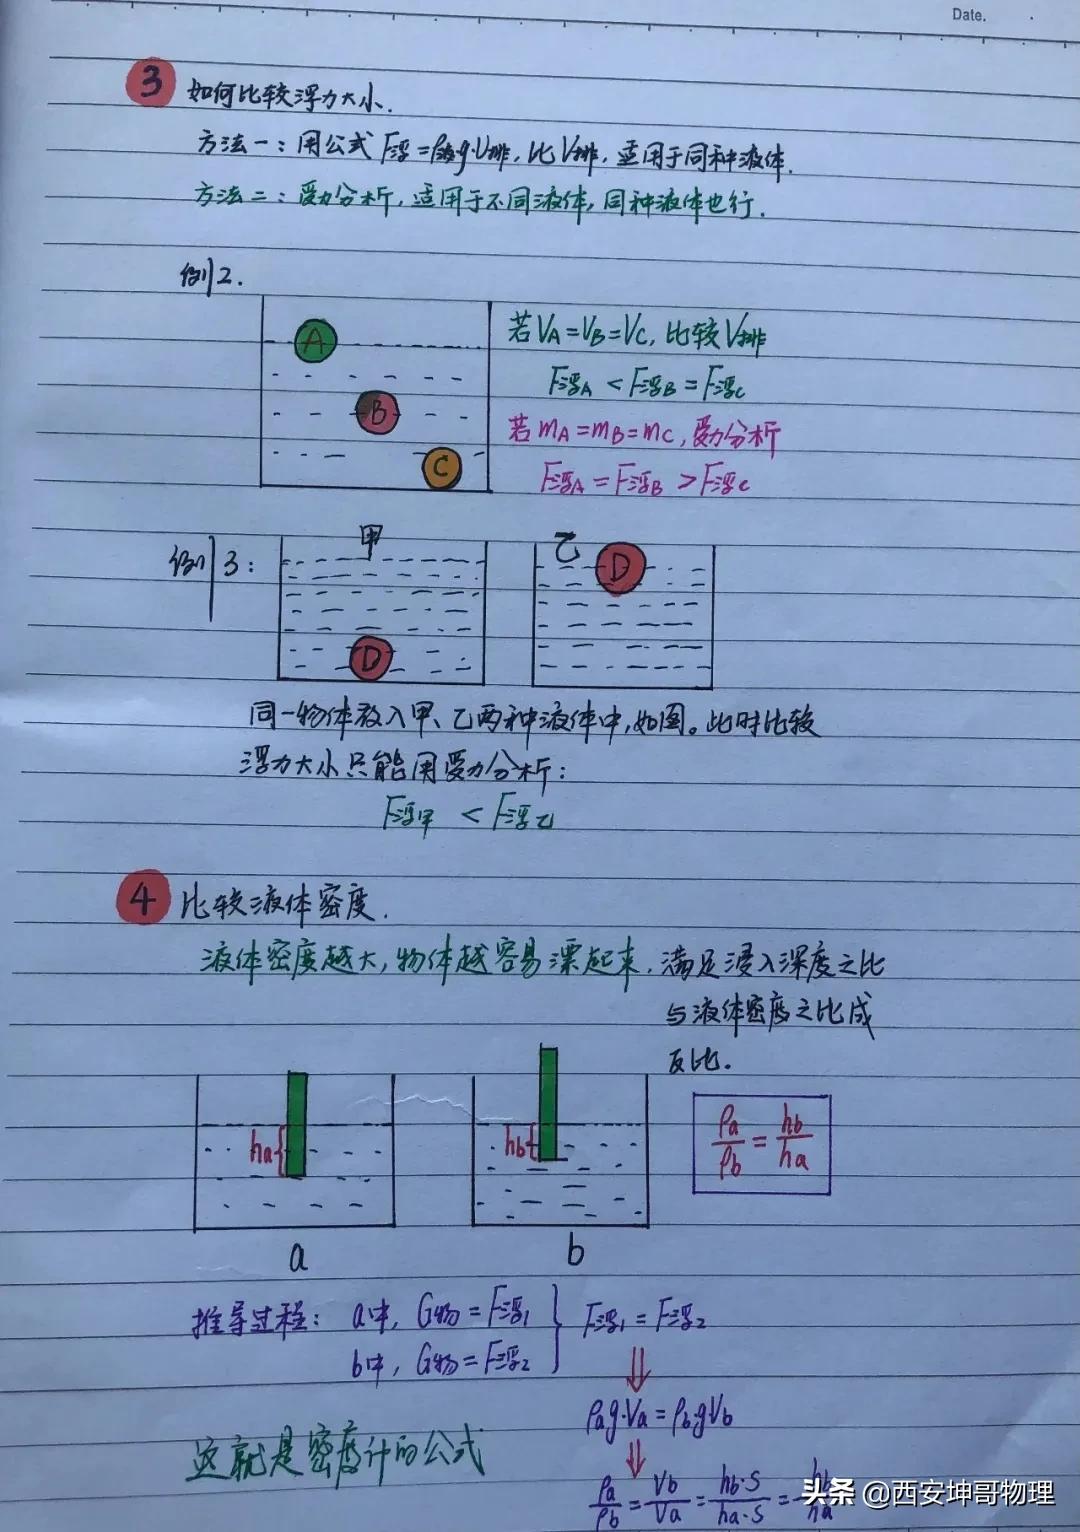 Date.
3 如何比较浮力大小.
方法一：用公式 F浮=ρ液g·V排，比V排，适用于同种液体.
方法二：受力分析，适用于不同液体，同种液体也行.
例2.
A
B
C
若VA=VB=VC，比较V排
F浮A < F浮B = F浮C
若mA=mB=mC，受力分析
F浮A = F浮B > F浮C
例3：
甲
乙
D
D
同一物体放入甲、乙两种液体中，如图。此时比较
浮力大小只能用受力分析：
F浮甲 < F浮乙
4 比较液体密度.
液体密度越大，物体越容易漂起来. 满足浸入深度之比
与液体密度之比成
反比.
ha
hb
ρa/ρb = hb/ha
a
b
推导过程： a中，G物=F浮1
b中，G物=F浮2
F浮1=F浮2
ρag·Va=ρb·gVb
这就是密度计的公式
ρa/ρb = Vb/Va = hb·S/ha·S = hb/ha
头条 @西安坤哥物理